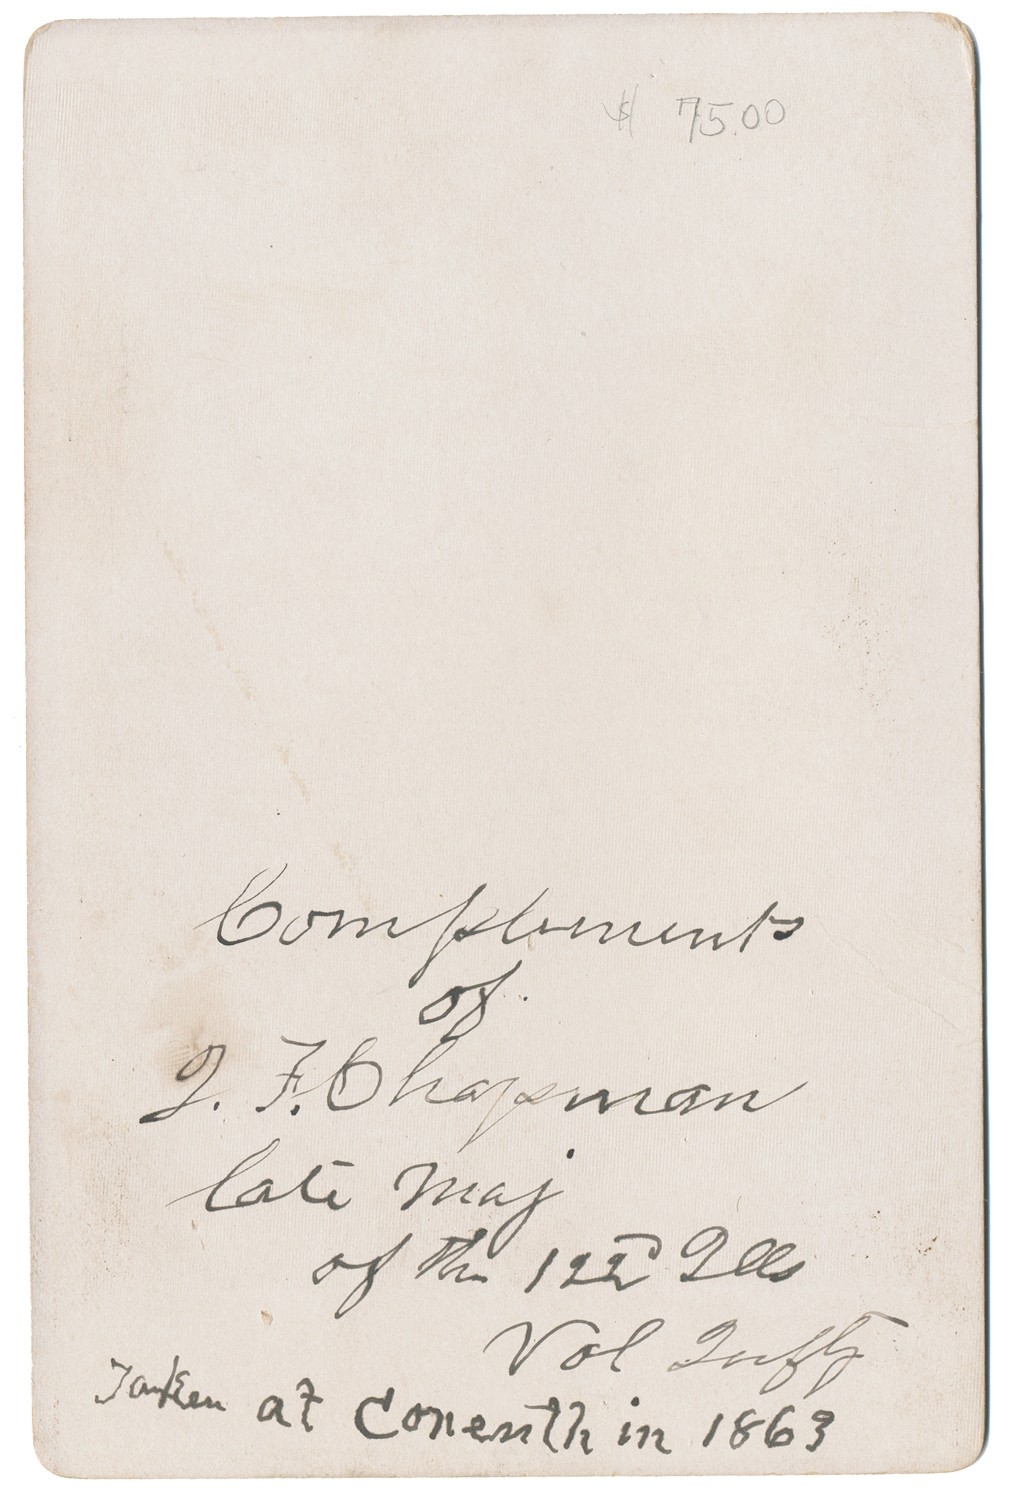 $ 75.00
Complements
of
J. F. Chapman
late Maj
of the 122D Ills
Vol Infty
Taken at Corenth in 1863